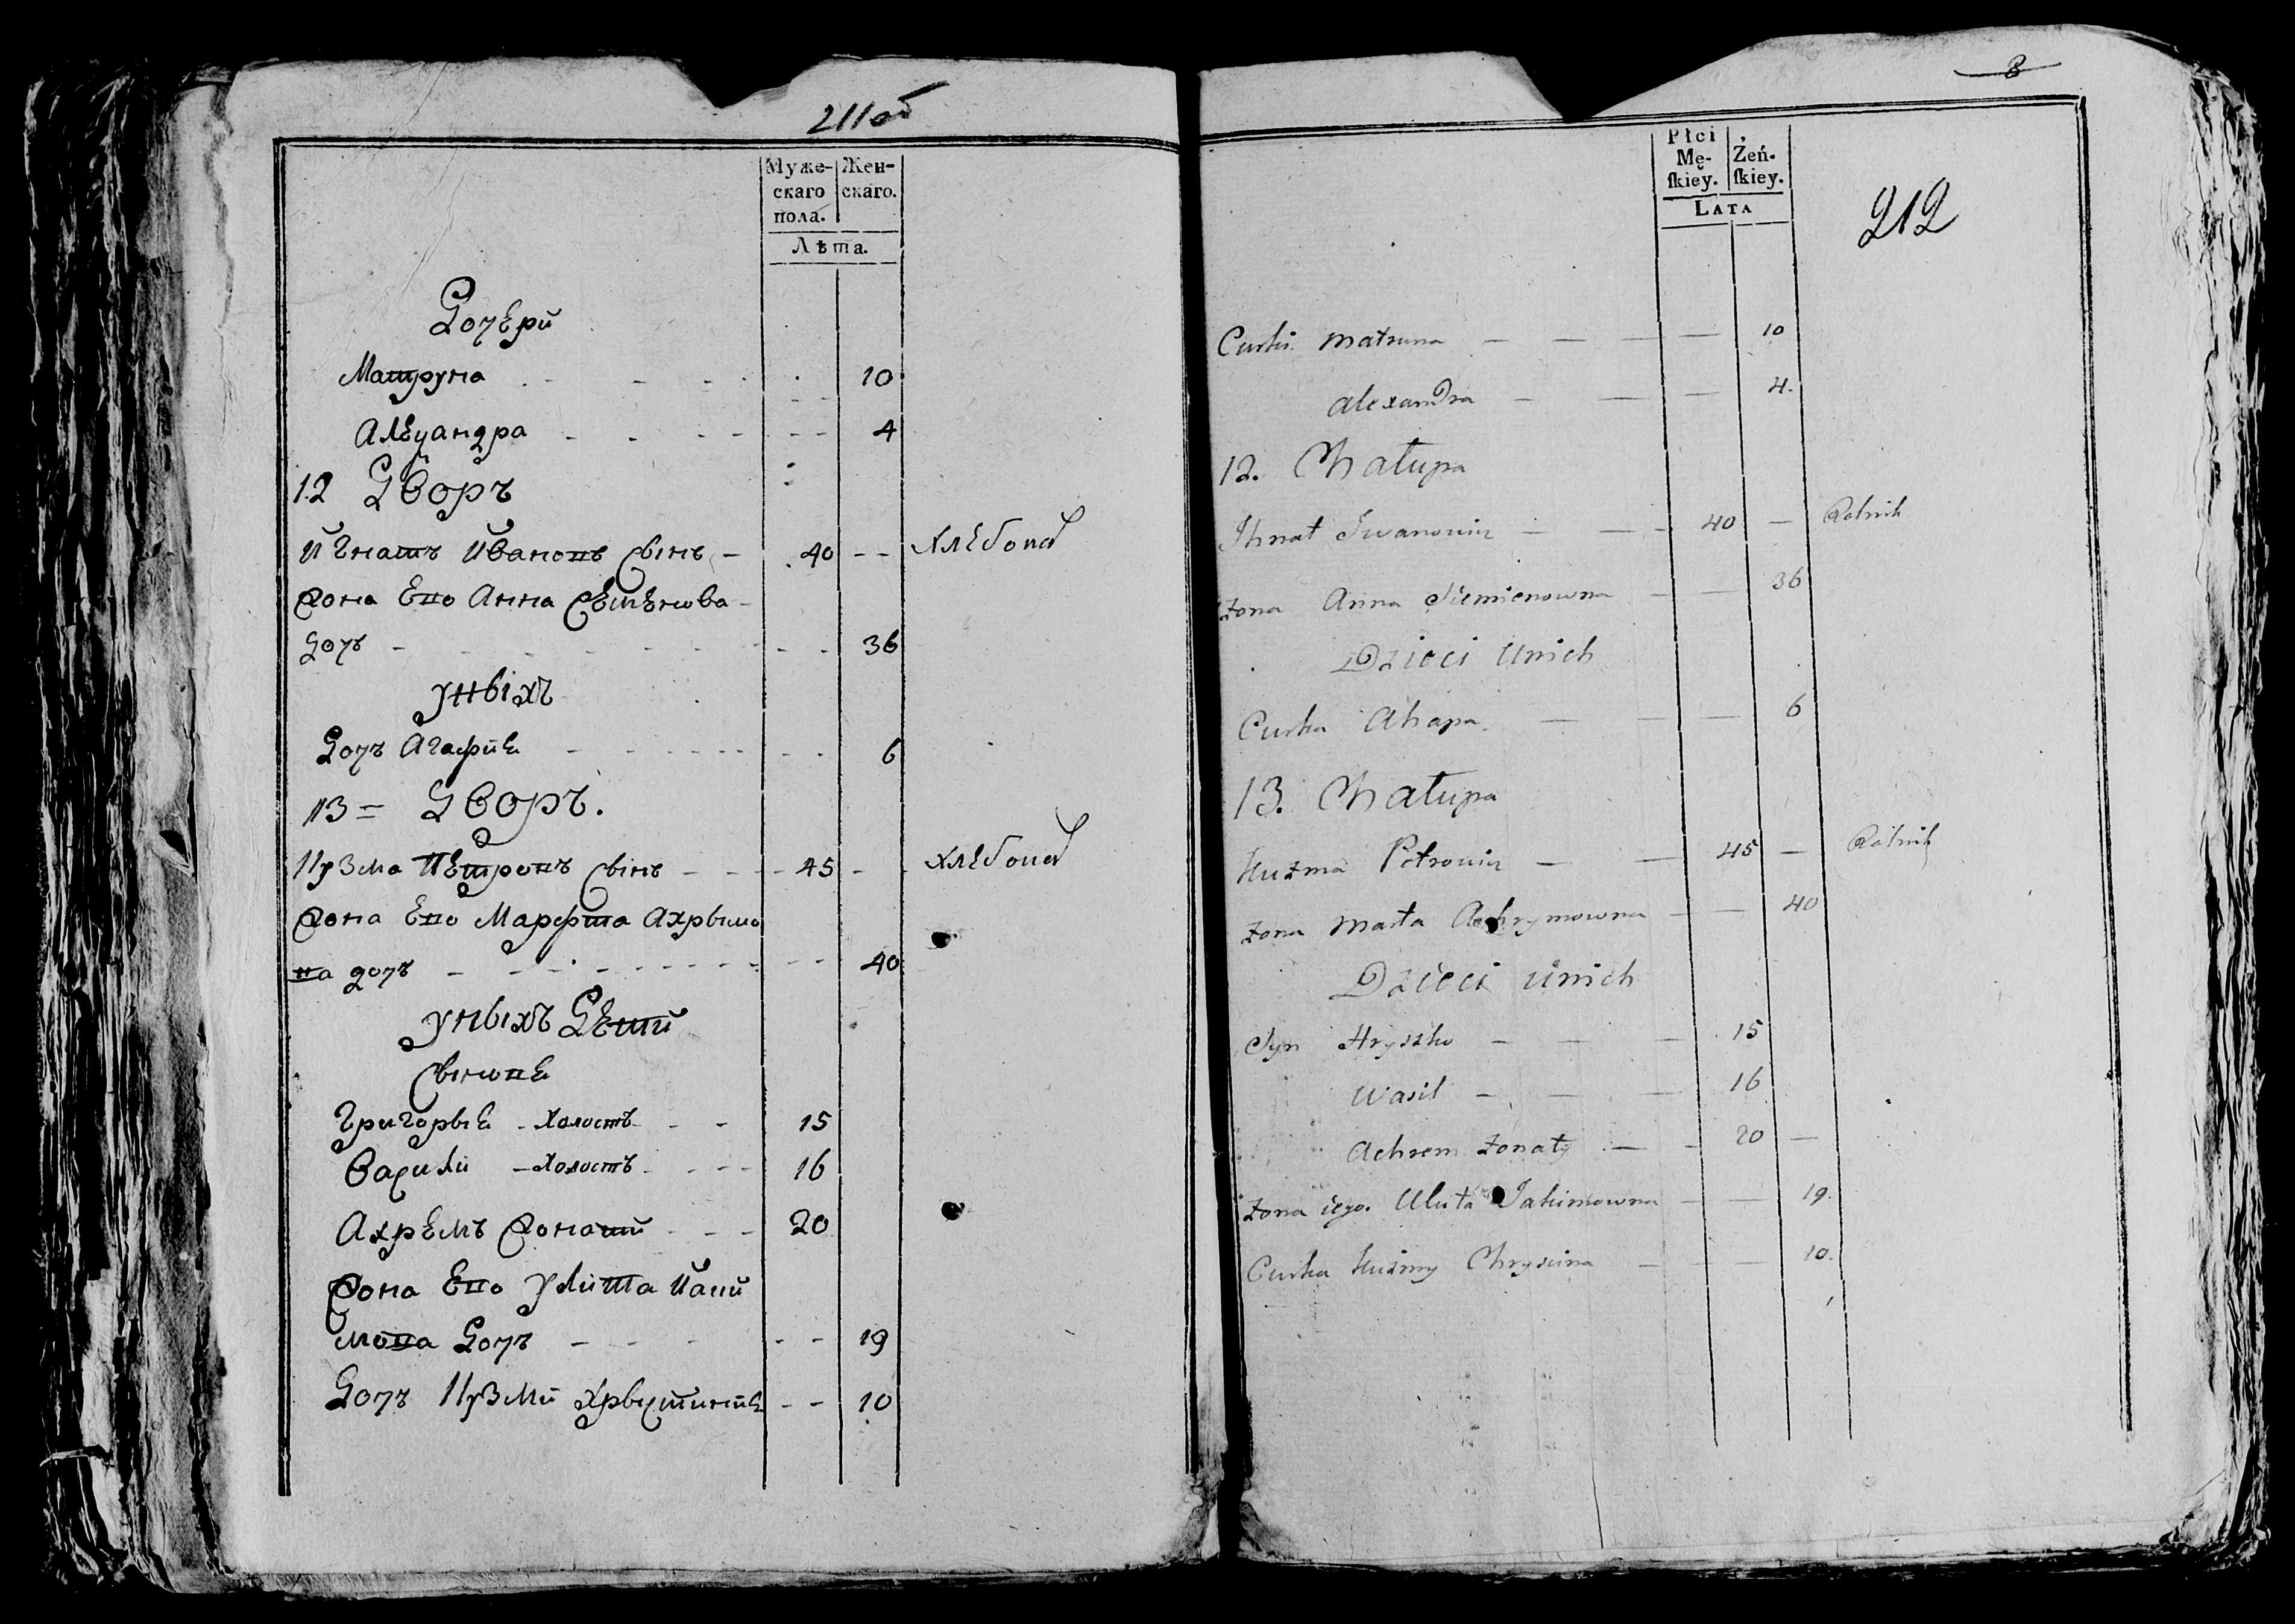 211об
Муже-
скаго
пола.
Жен-
скаго.
Лѣта.
Дочери
Матруна 10
Алеѯандра 4
12 Дворъ
Игнатъ Ивановъ сынъ 40 Хлебопа
Жона Ево Анна Семенова
дочъ 36
у ныхъ
Дочъ Агафие 6
13 = Дворъ.
Кузма Петровъ сынъ 45 Хлебопа
Жона Ево Марфта Ахрымо
ва дочъ 40
у ныхъ Дети
сыновե
Григорые Холостъ 15
Васили Холостъ 16
Ахремъ Жонати 20
Жона Ево Улита Иаки
мова Дочъ 19
Дочъ Кузми Хрыстиние 10
8
Płci
Mę-
ſkiey.
Żeń-
ſkiey.
LATA
212
Curki Matruna 10
Alexandra 4.
12. Chałupa
Ihnat Iwanowicz 40 Rolnik
żona Anna Siemienowna 36
Dzieci unich
Curka Ahapa 6
13. Chałupa
Kuzma Petrowicz 45 Rolnik
żona Marta Achrymowna 40
Dzieci unich
Syn Hryszko 15
Wasil 16
Achrem żonaty 20
żona iego. Uluta Jakimowna 19.
Curka Kuzmy Chryscina 10.